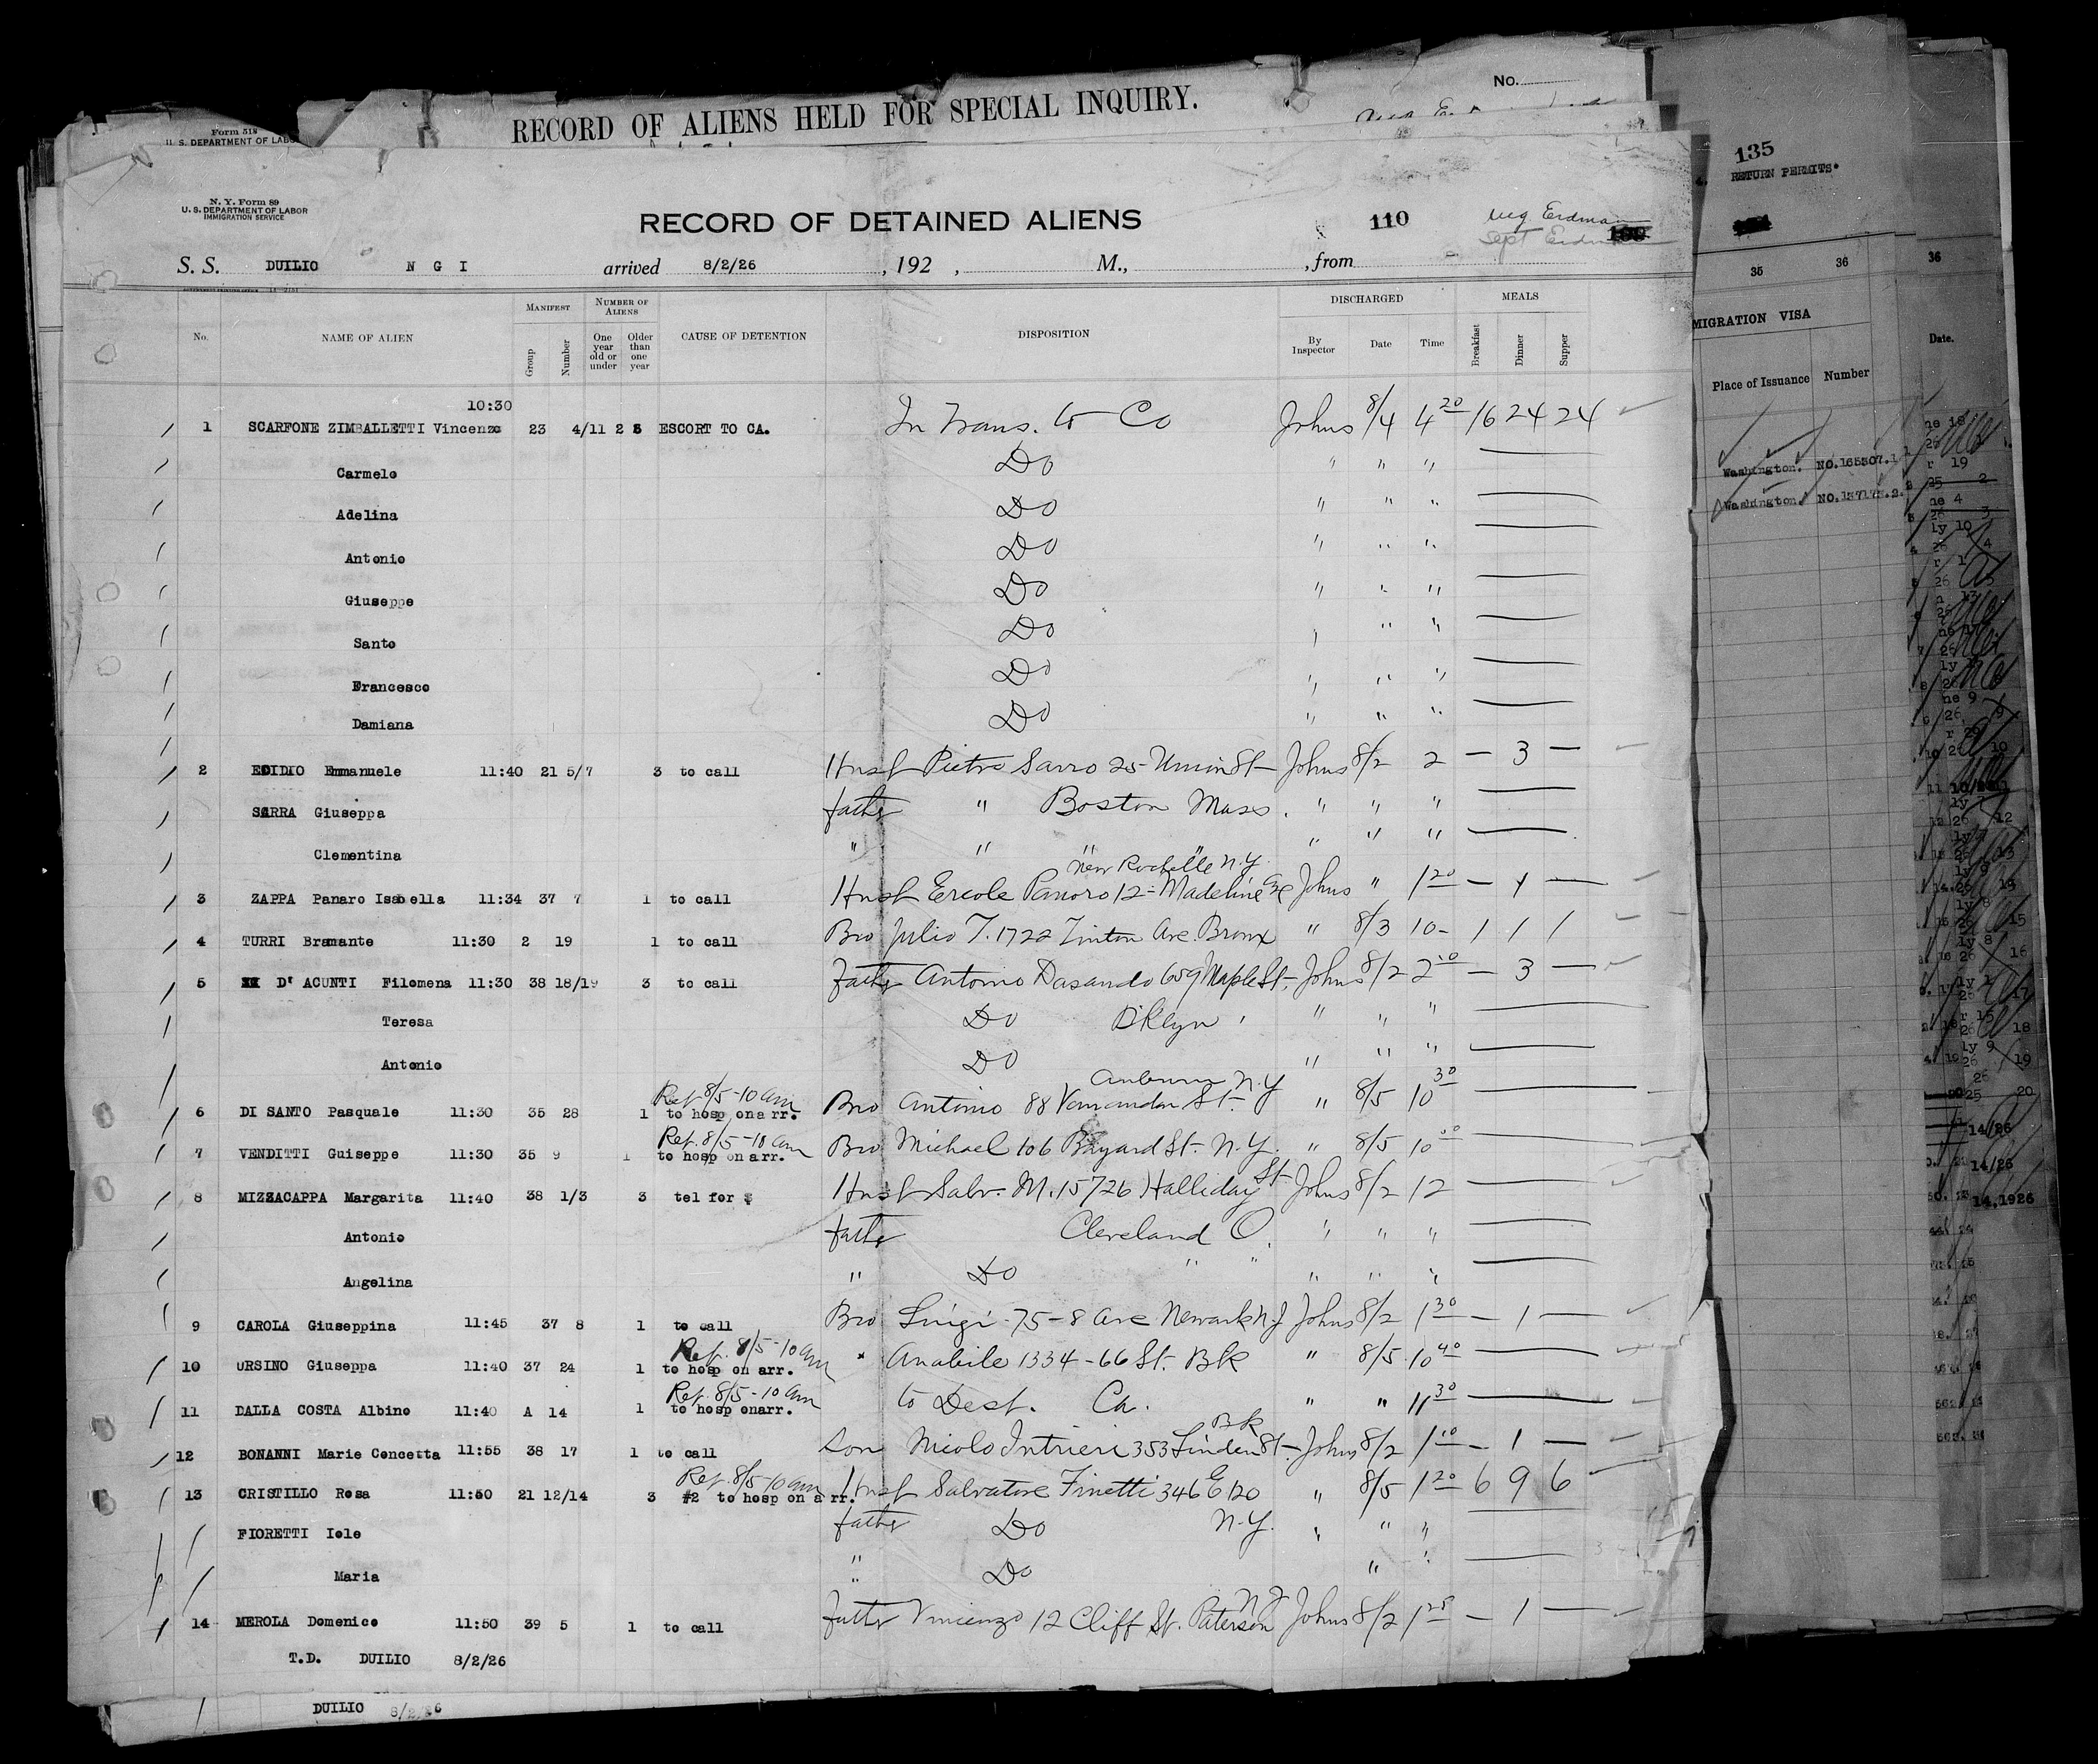 No.
RECORD OF ALIENS HELD FOR SPECIAL INQUIRY.
Form 518
U. S. DEPARTMENT OF LABO
135
RETURN PERMITS
N. Y. Form 89
U. S. DEPARTMENT OF LABOR
IMMIGRATION SERVICE
RECORD OF DETAINED ALIENS 110
S. S. DUILIO N G I arrived 8/2/26 , 192 , M., , from
No. NAME OF ALIEN MANIFEST Group Number NUMBER OF ALIENS One year old or under Older than one year CAUSE OF DETENTION DISPOSITION DISCHARGED By Inspector Date Time MEALS Breakfast Dinner Supper
35 36 36
MIGRATION VISA
Place of Issuance Number Date.
Washington. NO.165307.1
Washington. NO.137173.2.
10:30
1 SCARFONE ZIMBALLETTI Vincenzo 23 4/11 2 6 ESCORT TO CA. In Trans. to Co Johns 8/4 4 20 16 24 24
Carmelo Do " " "
Adelina Do " " "
Antonio Do " " "
Giuseppe Do " " "
Santo Do " " "
Francesco Do " " "
Damiana Do " " "
2 EGIDIO Emmanuele 11:40 21 5/7 3 to call Husf Pietro Sarro 25 Union St Johns 8/2 2 — 3 —
SARRA Giuseppa father " Boston Mass. " " "
Clementina " " " " " " "
New Rochelle N.Y.
3 ZAPPA Panaro Isabella 11:34 37 7 1 to call Husf Ercole Panoro 12 - Madeline Ave Johns " 1 20 — 1 —
4 TURRI Bramante 11:30 2 19 1 to call Bro Julio T. 1722 Tinton Ave. Bronx " 8/3 10- 1 1 1
5 D' ACUNTI Filomena 11:30 38 18/19 3 to call father Antonio Dasando 659 Maple St. Johns 8/2 2 10 — 3 —
Teresa Do Bklyn " " "
Antonio Do " " "
Ref 8/5-10 am Auburn N.Y
6 DI SANTO Pasquale 11:30 35 28 1 to hosp ona rr. Bro Antonio 88 St. " 8/5 10 30
Ref. 8/5-10 am
7 VENDITTI Guiseppe 11:30 35 9 1 to hosp on arr. Bro Michael 106 Bayard St. N.Y. " 8/5 10 00
8 MIZZACAPPA Margarita 11:40 38 1/3 3 tel for $ Husf Salv. M. 15726 Halliday St Johns 8/2 12
Antonio father Cleveland O. " " "
Angelina " Do " " " " "
9 CAROLA Giuseppina 11:45 37 8 1 to call Bro Luigi 75-8 Ave Newark N.J Johns 8/2 1 30 — 1 —
Ref. 8/5-10 am
10 URSINO Giuseppa 11:40 37 24 1 to hosp on arr. " Anabile 1334-66 St. Bk " 8/5 10 40
Ref. 8/5-10 am
11 DALLA COSTA Albino 11:40 A 14 1 to hosp onarr. to Dest. Ca. " " 11 30
Bk
12 BONANNI Marie Concetta 11:55 38 17 1 to call Son Nicolo Intrieri 353 Linden St- Johns 8/2 1 10 — 1 —
Ref. 8/5-10 am
13 CRISTILLO Rosa 11:50 21 12/14 3 #2 to hosp on a rr. Husf Salvatore Finetti 346 E 120 " 8/5 1 20 6 9 6
FIORETTI Iole father Do N.Y. " " "
Maria " Do " "
N.J
14 MEROLA Domenico 11:50 39 5 1 to call father Vincenzo 12 Cliff St. Paterson Johns 8/2 1 25 — 1 —
T.D. DUILIO 8/2/26
DUILIO 8/2/26